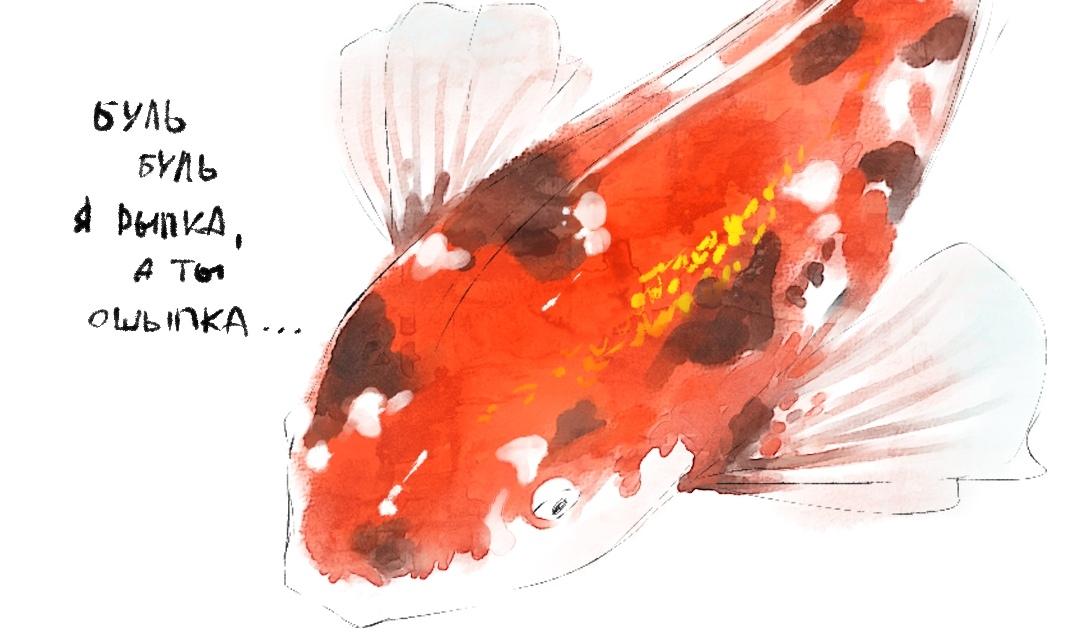 БУЛЬ
БУЛЬ
Я РЫПКА,
А ТЫ
ОШЫПКА...